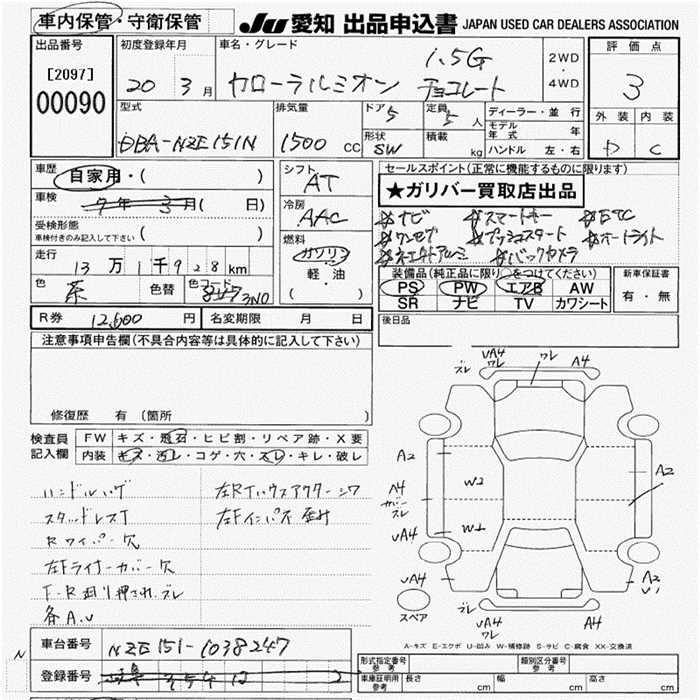 車内保管・守衛保管
JU 愛知 出品申込書 JAPAN USED CAR DEALERS ASSOCIATION
出品番号
[2097]
00090
初度登録年月
20 3月
車名・グレード
1.5G
カローラルミオン チョコレート
2WD
・
4WD
評価点
3
外装 内装
D C
型式
DBA-NZE151N
排気量
1500 cc
ドア 5
形状 SW
定員 5 人
積載 kg
ディーラー・並行
モデル年式 年
ハンドル 左・右
車歴
自家用・( )
車検
7年 3月( 日)
受検形態
車検付きのみ記入して下さい ( )
走行
13万1千928km
色 茶 色替 色コード 3N0
シフト
AT
冷房
AAC
燃料
ガソリン
軽・油
( )
セールスポイント(正常に機能するものに限ります)
★ガリバー買取店出品
ナビ スマートキー ETC
ワンセグ プッシュスタート オートライト
アルミ バックカメラ
装備品(純正品に限り○をつけてください)
PS PW エアB AW
SR ナビ TV カワシート
新車保証書
有・無
R券 12,600 円 名変期限 月 日
後日品
注意事項申告欄(不具合内容等は具体的に記入して下さい)
修復歴 有(箇所 )
検査員
記入欄
FW キズ・飛石・ヒビ割・リペア跡・X要
内装 キズ・汚レ・コゲ・穴・スレ・キレ・破レ
ハンドルハゲ 左RTハウスアウターシワ
スタッドレスT 左Fインパネ
Rワイパー欠
左Fライナーカバー欠
F・R廻り押サレ、ズレ
各A.U
ズレ UA4 ワレ ワレ A4
A2 A2
A4
カバーズレ
W2
UA4 W1
UA4 A2
スペア
ズレ UA4 ワレ A4
A-キズ E-エクボ U-凹み W-補修跡 S-サビ C-腐食 XX-交換済
車台番号 NZE151-1038247
N
登録番号
形式指定番号 参考 類別区分番号 参考
車庫証明用 参考 長さ cm 幅 cm 高さ cm